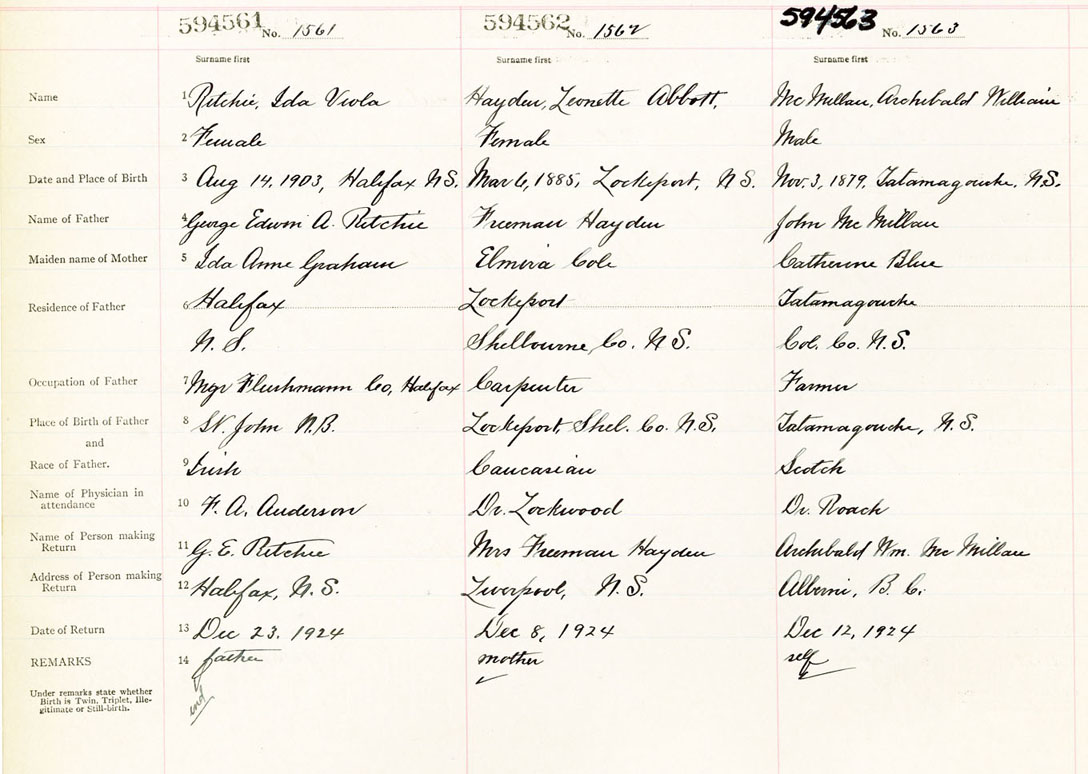 594561 No. 1561 594562 No. 1562 594563 No. 1563
Surname first Surname first Surname first
Name 1 Ritchie, Ida Viola Hayden, Leonette Abbott, McMillan, Archibald William
Sex 2 Female Female Male
Date and Place of Birth 3 Aug 14, 1903, Halifax N.S. Mar 6, 1885, Lockeport, N S. Nov. 3, 1879, Tatamagouche, N.S.
Name of Father 4 George Edwin A. Ritchie Freeman Hayden John McMillan
Maiden name of Mother 5 Ida Anne Graham Elmira Cole Catherine Blue
Residence of Father 6 Halifax Lockeport Tatamagouche
N. S. Shelbourne Co. N S. Col. Co. N.S.
Occupation of Father 7 Mgr Fleishmann Co, Halifax Carpenter Farmer
Place of Birth of Father 8 St. John N.B. Lockeport, Shel. Co. N.S. Tatamagouche, N.S.
and
Race of Father. 9 Irish Caucasian Scotch
Name of Physician in
attendance 10 F. A. Anderson Dr. Lockwood Dr. Roach
Name of Person making
Return 11 G. E. Ritchie Mrs Freeman Hayden Archibald Wm. McMillan
Address of Person making
Return 12 Halifax, N.S. Liverpool, N.S. Alberni, B.C.
Date of Return 13 Dec 23. 1924 Dec 8, 1924 Dec 12, 1924
REMARKS 14 father mother self
Under remarks state whether
Birth is Twin, Triplet, Ille-
gitimate or Still-birth.